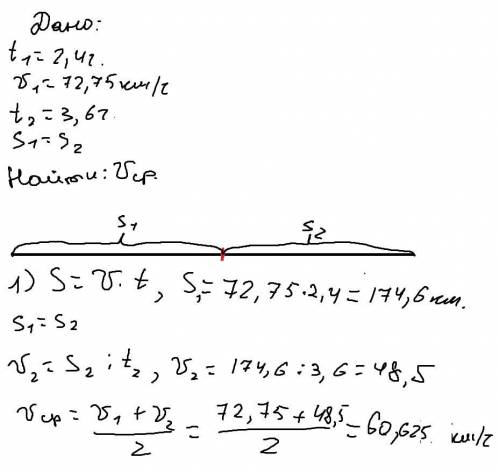 Дано:
t₁=2,4г.
v₁=72,75 км/г
t₂=3,6г.
S₁=S₂
Найти: vср.
S₁ S₂
1) S=v·t, S₁=72,75·2,4=174,6 км.
S₁=S₂
v₂=S₂:t₂, v₂=174,6:3,6=48,5
vср=(v₁+v₂)/2=(72,75+48,5)/2=60,625 км/г